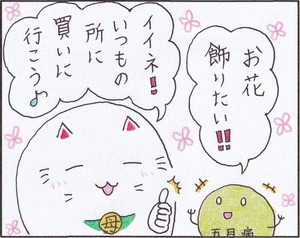 お花
飾りたい!!
イイネ!!
いつもの
所に
買いに
行こう♪
母
五月病